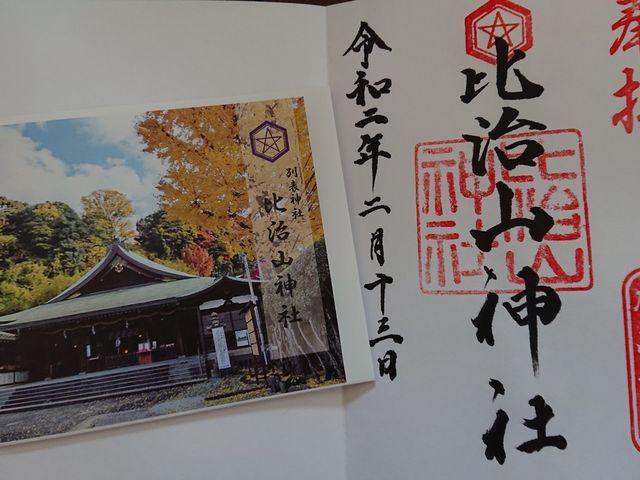 奉拝
比治山神社
比治山神社
令和二年二月十三日
別表神社
比治山神社